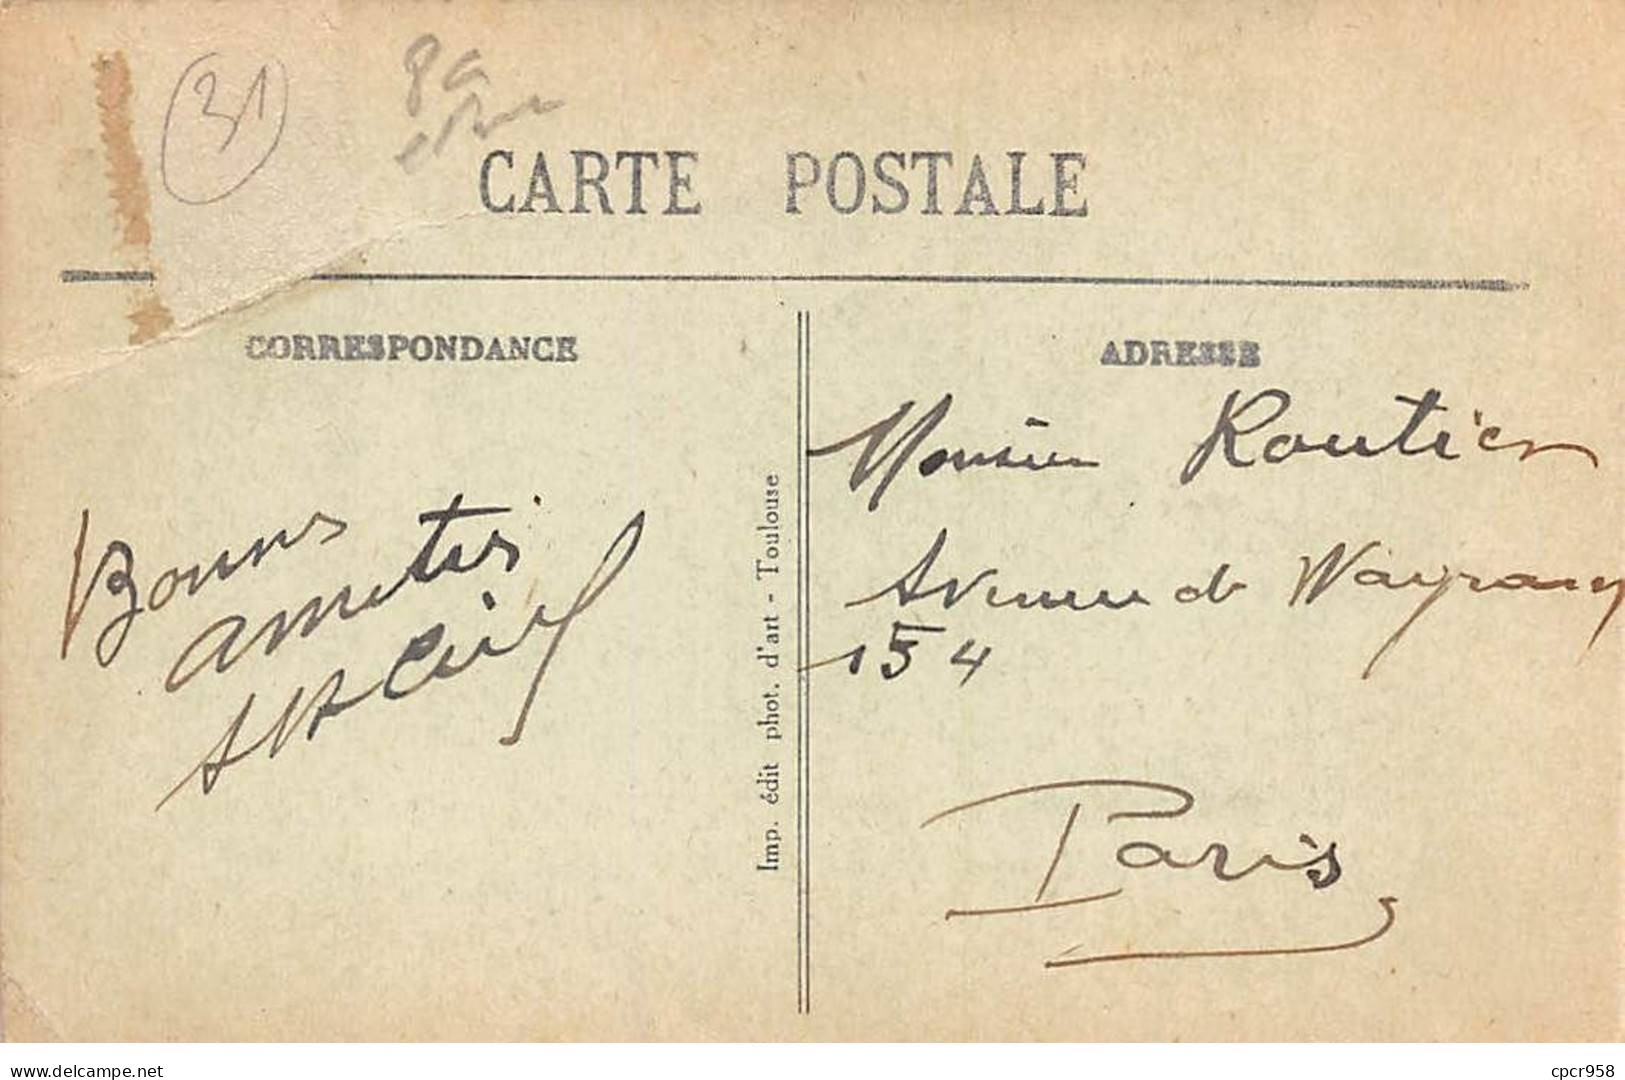 31
CARTE POSTALE
CORRESPONDANCE
ADRESSE
Bonnes
amitiés
Imp. édit phot. d'art - Toulouse
Monsieur Routier
Avenue de Wagram
154
Paris
www.delcampe.net
cpcr958